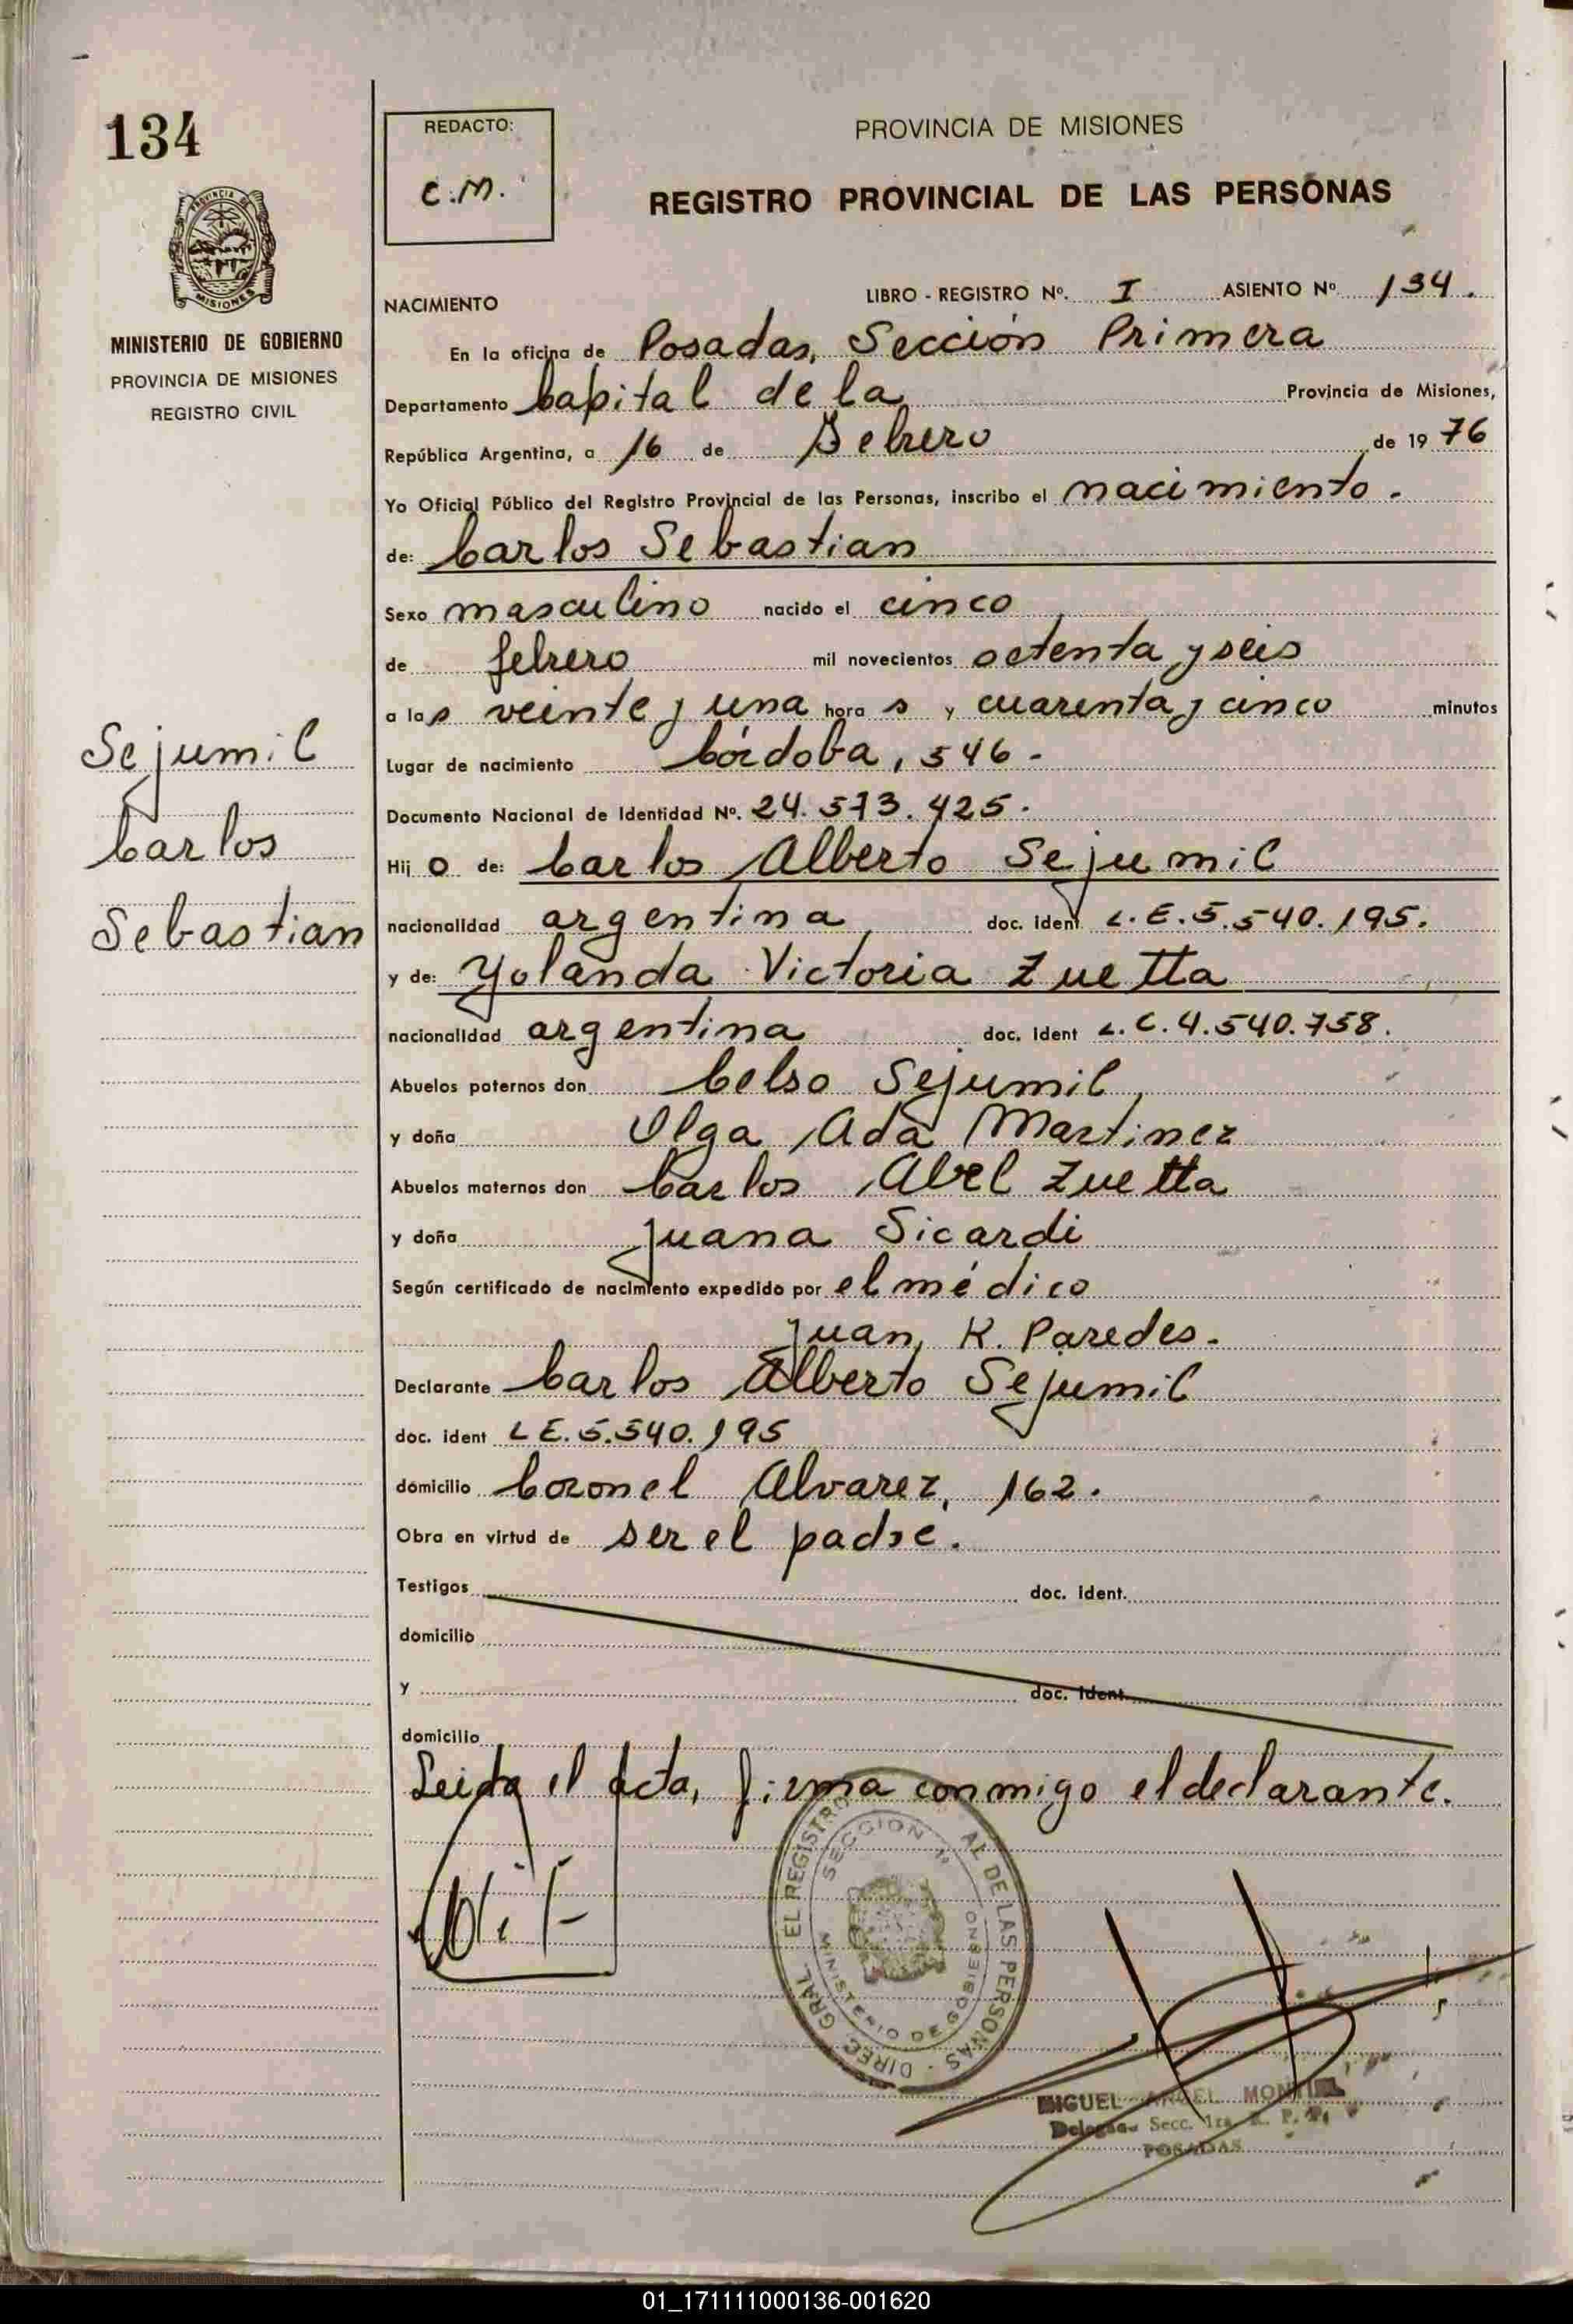 134
PROVINCIA DE
MISIONES
MINISTERIO DE GOBIERNO
PROVINCIA DE MISIONES
REGISTRO CIVIL
Sejumil
Carlos
Sebastian
REDACTO:
C.M.
PROVINCIA DE MISIONES
REGISTRO PROVINCIAL DE LAS PERSONAS
NACIMIENTO LIBRO - REGISTRO Nº. I ASIENTO Nº 134.
En la oficina de Posadas, Sección Primera
Departamento Capital de la Provincia de Misiones,
República Argentina, a 16 de Febrero de 19 76
Yo Oficial Público del Registro Provincial de las Personas, inscribo el nacimiento.
de: Carlos Sebastian
Sexo masculino nacido el cinco
de febrero mil novecientos setenta y seis
a las veinte y una horas y cuarenta y cinco minutos
Lugar de nacimiento Córdoba, 546.
Documento Nacional de Identidad Nº. 24.573.425.
Hijo de: Carlos Alberto Sejumil
nacionalidad argentina doc. ident L.E.5.540.195.
y de: Yolanda Victoria Zuetta
nacionalidad argentina doc. ident L.C.4.540.758.
Abuelos paternos don Celso Sejumil
y doña Olga Ada Martinez
Abuelos maternos don Carlos Abel Zuetta
y doña Juana Sicardi
Según certificado de nacimiento expedido por el médico
Juan, K. Paredes.
Declarante Carlos Alberto Sejumil
doc. ident L E.5.540.195
domicilio Coronel Alvarez, 162.
Obra en virtud de ser el padre.
Testigos doc. ident.
domicilio
y doc. ident.
domicilio
Leida el acta, firma conmigo el declarante.
DIREC. GRAL. EL REGISTRO AL DE LAS PERSONAS -
SECCION 1ª
MINISTERIO DE GOBIERNO
MIGUEL ANGEL
Secc. 1ra R. P. P.
POSADAS
01_171111000136-001620